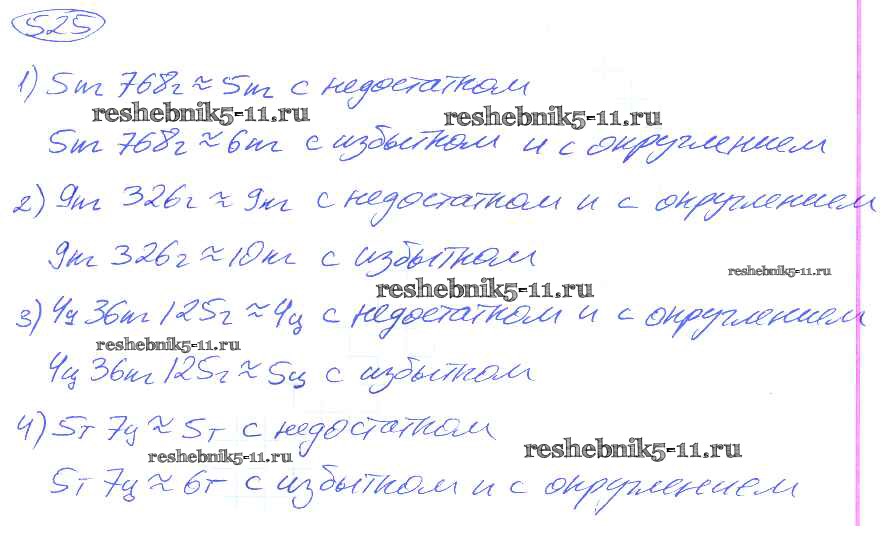 525
1) 5кг 768г ≈ 5кг с недостатком
reshebnik5-11.ru reshebnik5-11.ru
5кг 768г ≈ 6кг с избытком и с округлением
2) 9кг 326г ≈ 9кг с недостатком и с округлением
9кг 326г ≈ 10кг с избытком
reshebnik5-11.ru
reshebnik5-11.ru
3) 4ц 36кг 125г ≈ 4ц с недостатком и с округлением
reshebnik5-11.ru
4ц 36кг 125г ≈ 5ц с избытком
4) 5т 7ц ≈ 5т с недостатком
reshebnik5-11.ru reshebnik5-11.ru
5т 7ц ≈ 6т с избытком и с округлением